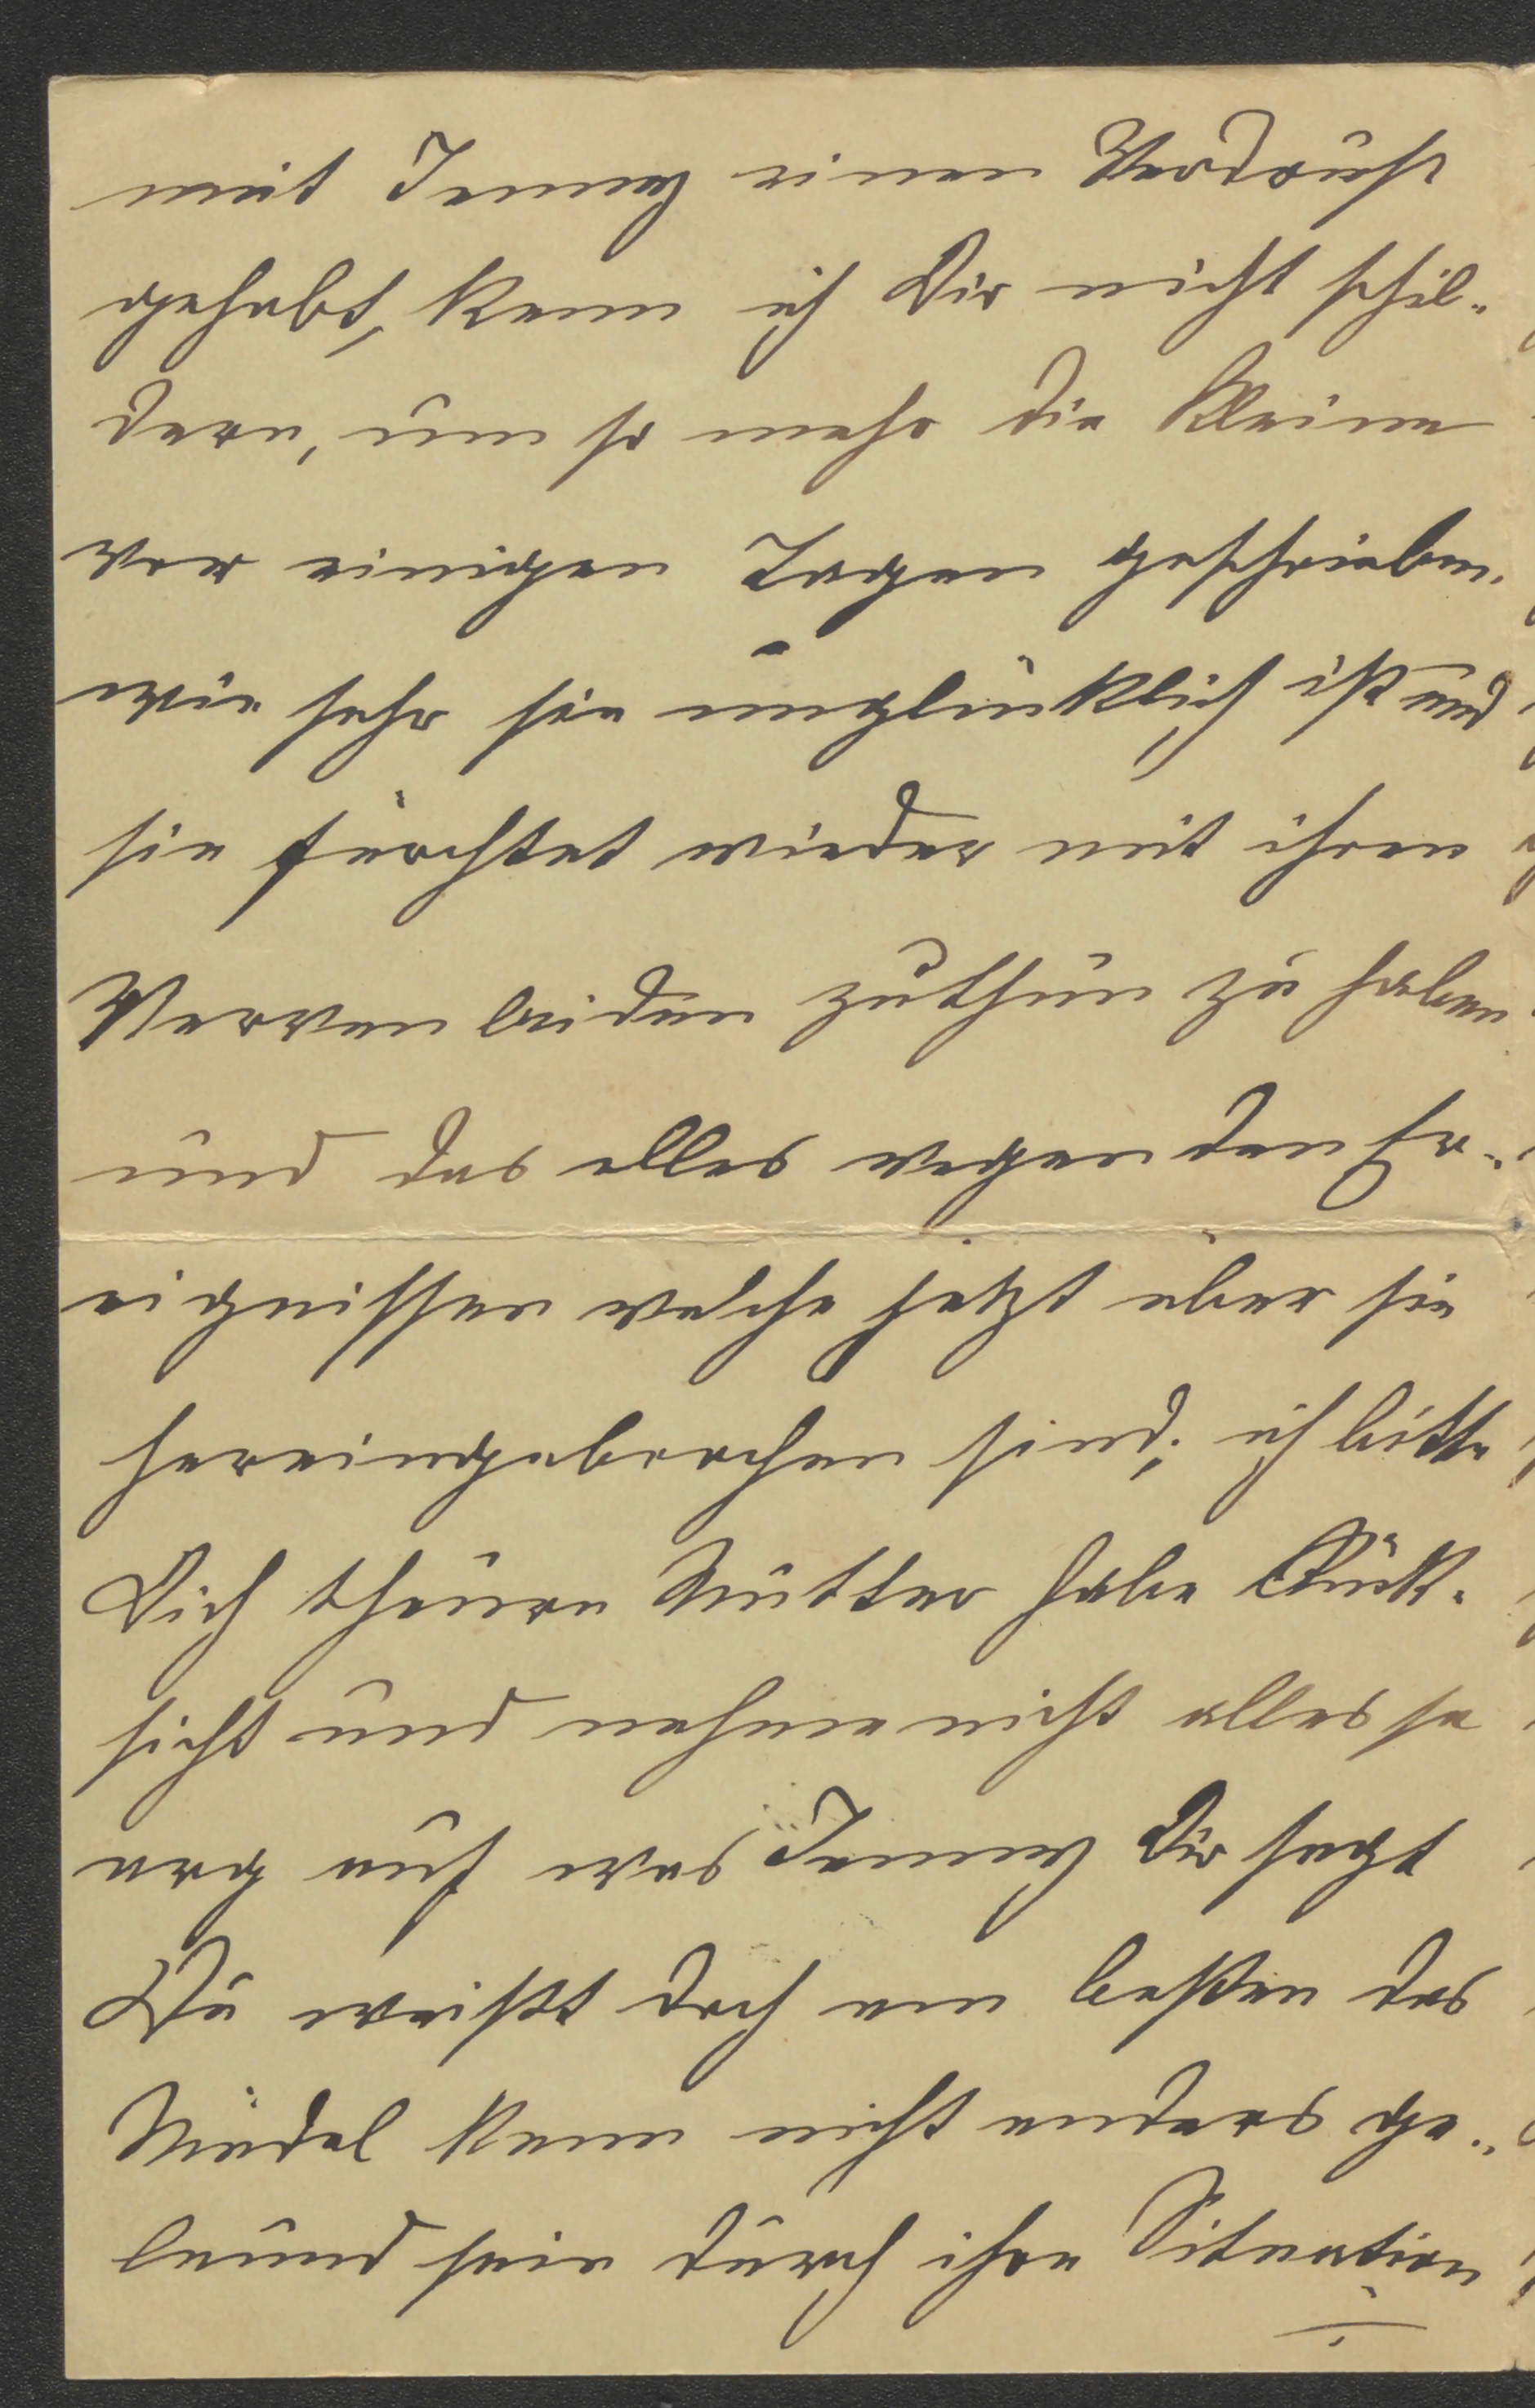 mit Jenny einen Verdruß
gehabt, kann ich Dir nicht schil-
dern, um so mehr die Kleine
vor einigen Tagen geschrieben.
wie sehr sie unglücklich ist und
sie fürchtet wieder mit ihren
Nervenleiden zuthun zu haben
und das alles wegen den Er-
eignissen welche jetzt über sie
hereingebrochen sind; ich bitte
Dich theure Mutter habe Rück-
sicht und nehme nicht alles so
arg auf was Jenny Dir sagt
Du weißt doch am besten das
Mädel kann nicht anders ge-
launt sein durch ihre Situation